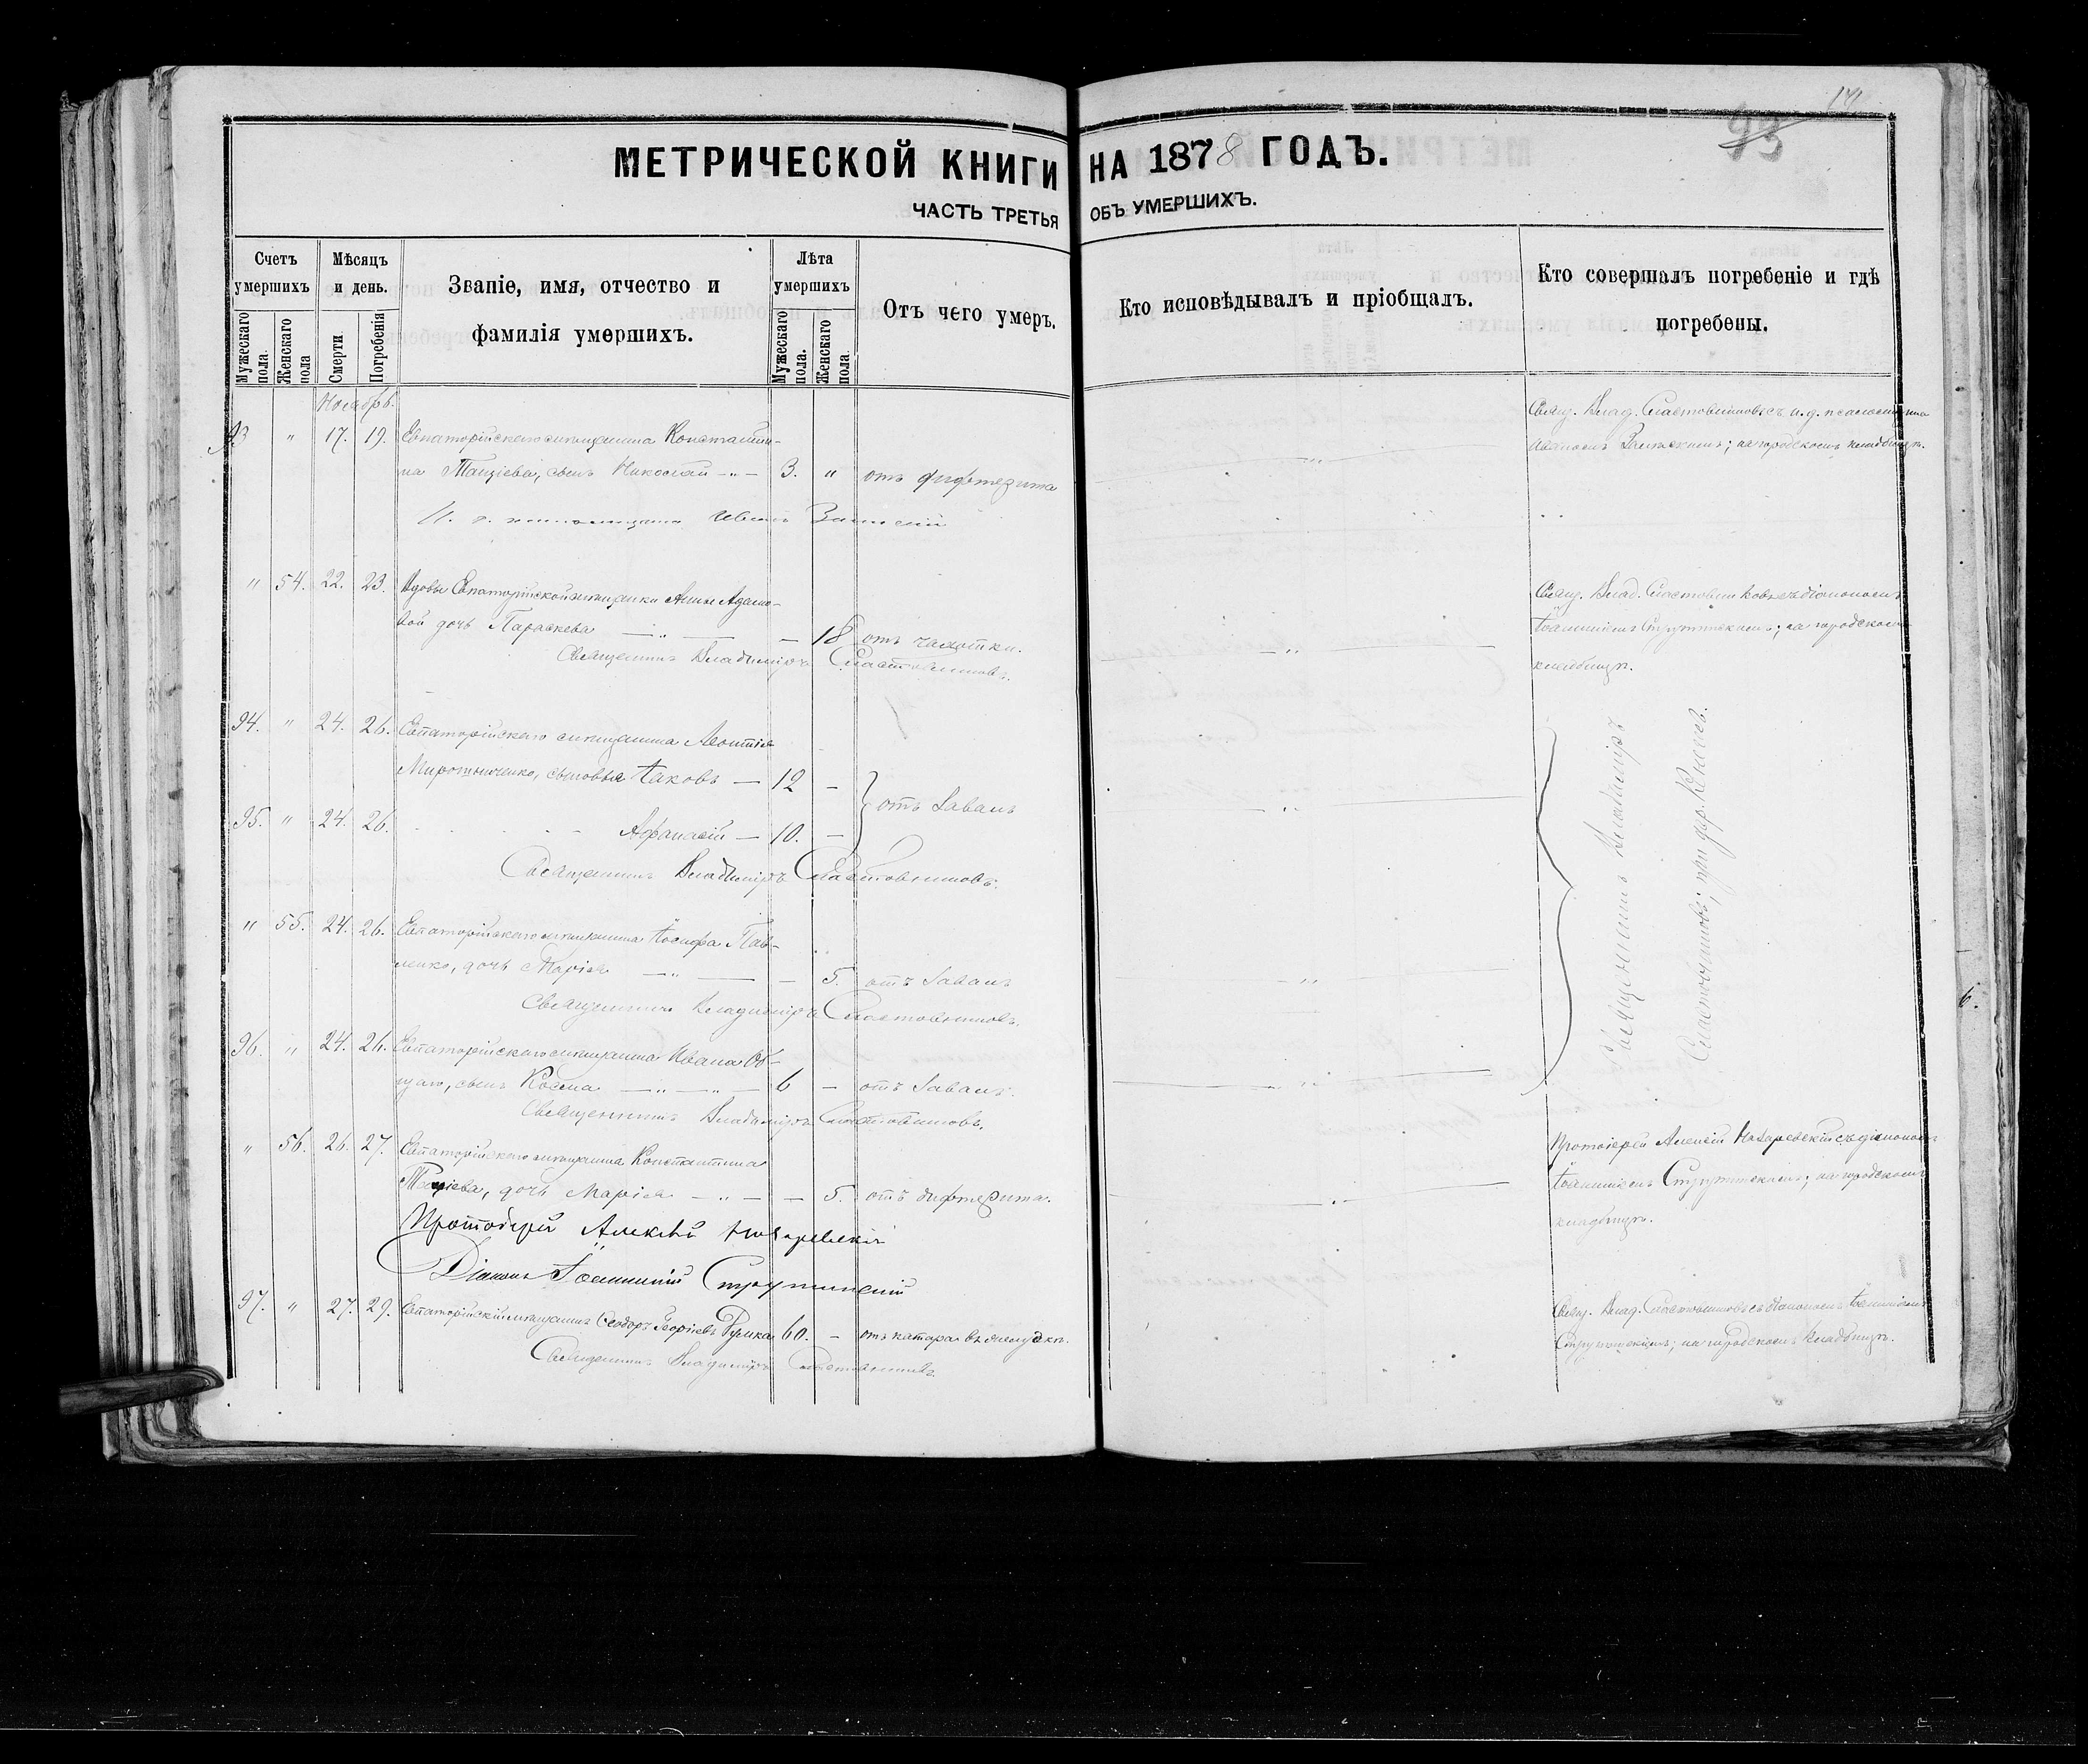 МЕТРИЧЕСКОЙ КНИГИ НА 1878 ГОДЪ.
ЧАСТЬ ТРЕТЬЯ ОБЪ УМЕРШИХЪ.
93
Счетъ умершихъ
Мужескаго пола.
Женскаго пола
Мѣсяцъ и день.
Смерти
Погребенія
Званіе, имя, отчество и фамилія умершихъ.
Лѣта умершихъ
Мужескаго пола.
Женскаго пола.
Отъ чего умеръ.
Кто исповѣдывалъ и пріобщалъ.
Кто совершалъ погребеніе и гдѣ погребены.
Ноябрь.
93 " 17. 19. Евпаторійскаго мѣщанина Константи-
на сынъ Николай 3. " отъ дифтерита
Иванъ
Свящ. Влад. Сластовниковъ съ и. д. псаломщика
Иваномъ; на городскомъ кладбищѣ.
" 54. 22. 23. Вдовы Евпаторійской мѣщанки Анны Адамо-
вой дочь Параскева — 18 отъ чахотки.
Священникъ Владиміръ Сластовниковъ.
Свящ. Влад. Сластовниковъ съ діакономъ
Іоанникіемъ Струтинскимъ; на городскомъ
кладбищѣ.
94. " 24. 26. Евпаторійскаго мѣщанина Леонтія
Мирошниченко, сыновья Іаковъ — 12 —
95. " 24. 26. Афанасій — 10. — отъ жабы
Священникъ Владиміръ Сластовниковъ.
" 55. 24. 26. Евпаторійскаго мѣщанина Іосифа Пав-
ленко, дочь Марія — 5. отъ жабы
Священникъ Владиміръ Сластовниковъ.
96. " 24. 26. Евпаторійскаго мѣщанина Ивана
сынъ Косма 6 — отъ жабы.
Священникъ Владиміръ Сластовниковъ.
Священникъ Владиміръ
Сластовниковъ; при дер.
" 56. 26. 27. Евпаторійскаго мѣщанина Константина
дочь Марія — 5. отъ дифтерита.
Протоіерей Алексѣй Назаревскій
Діаконъ Іоанникій Струтинскій
Протоіерей Алексій Назаревскій съ діакономъ
Іоанникіемъ Струтинскимъ; на городскомъ
кладбищѣ.
97. " 27. 29. Евпаторійскій мѣщанинъ Ѳеодоръ Георгіевъ 60. — отъ катара въ желудкѣ.
Священникъ Владиміръ Сластовниковъ.
Свящ. Влад. Сластовниковъ съ діакономъ Іоанникіемъ
Струтинскимъ; на городскомъ кладбищѣ.
6.